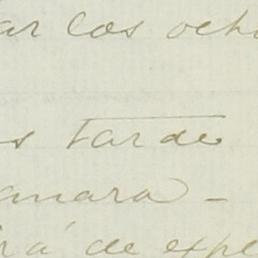 ar los och
s tarde
amara -
rá de expe